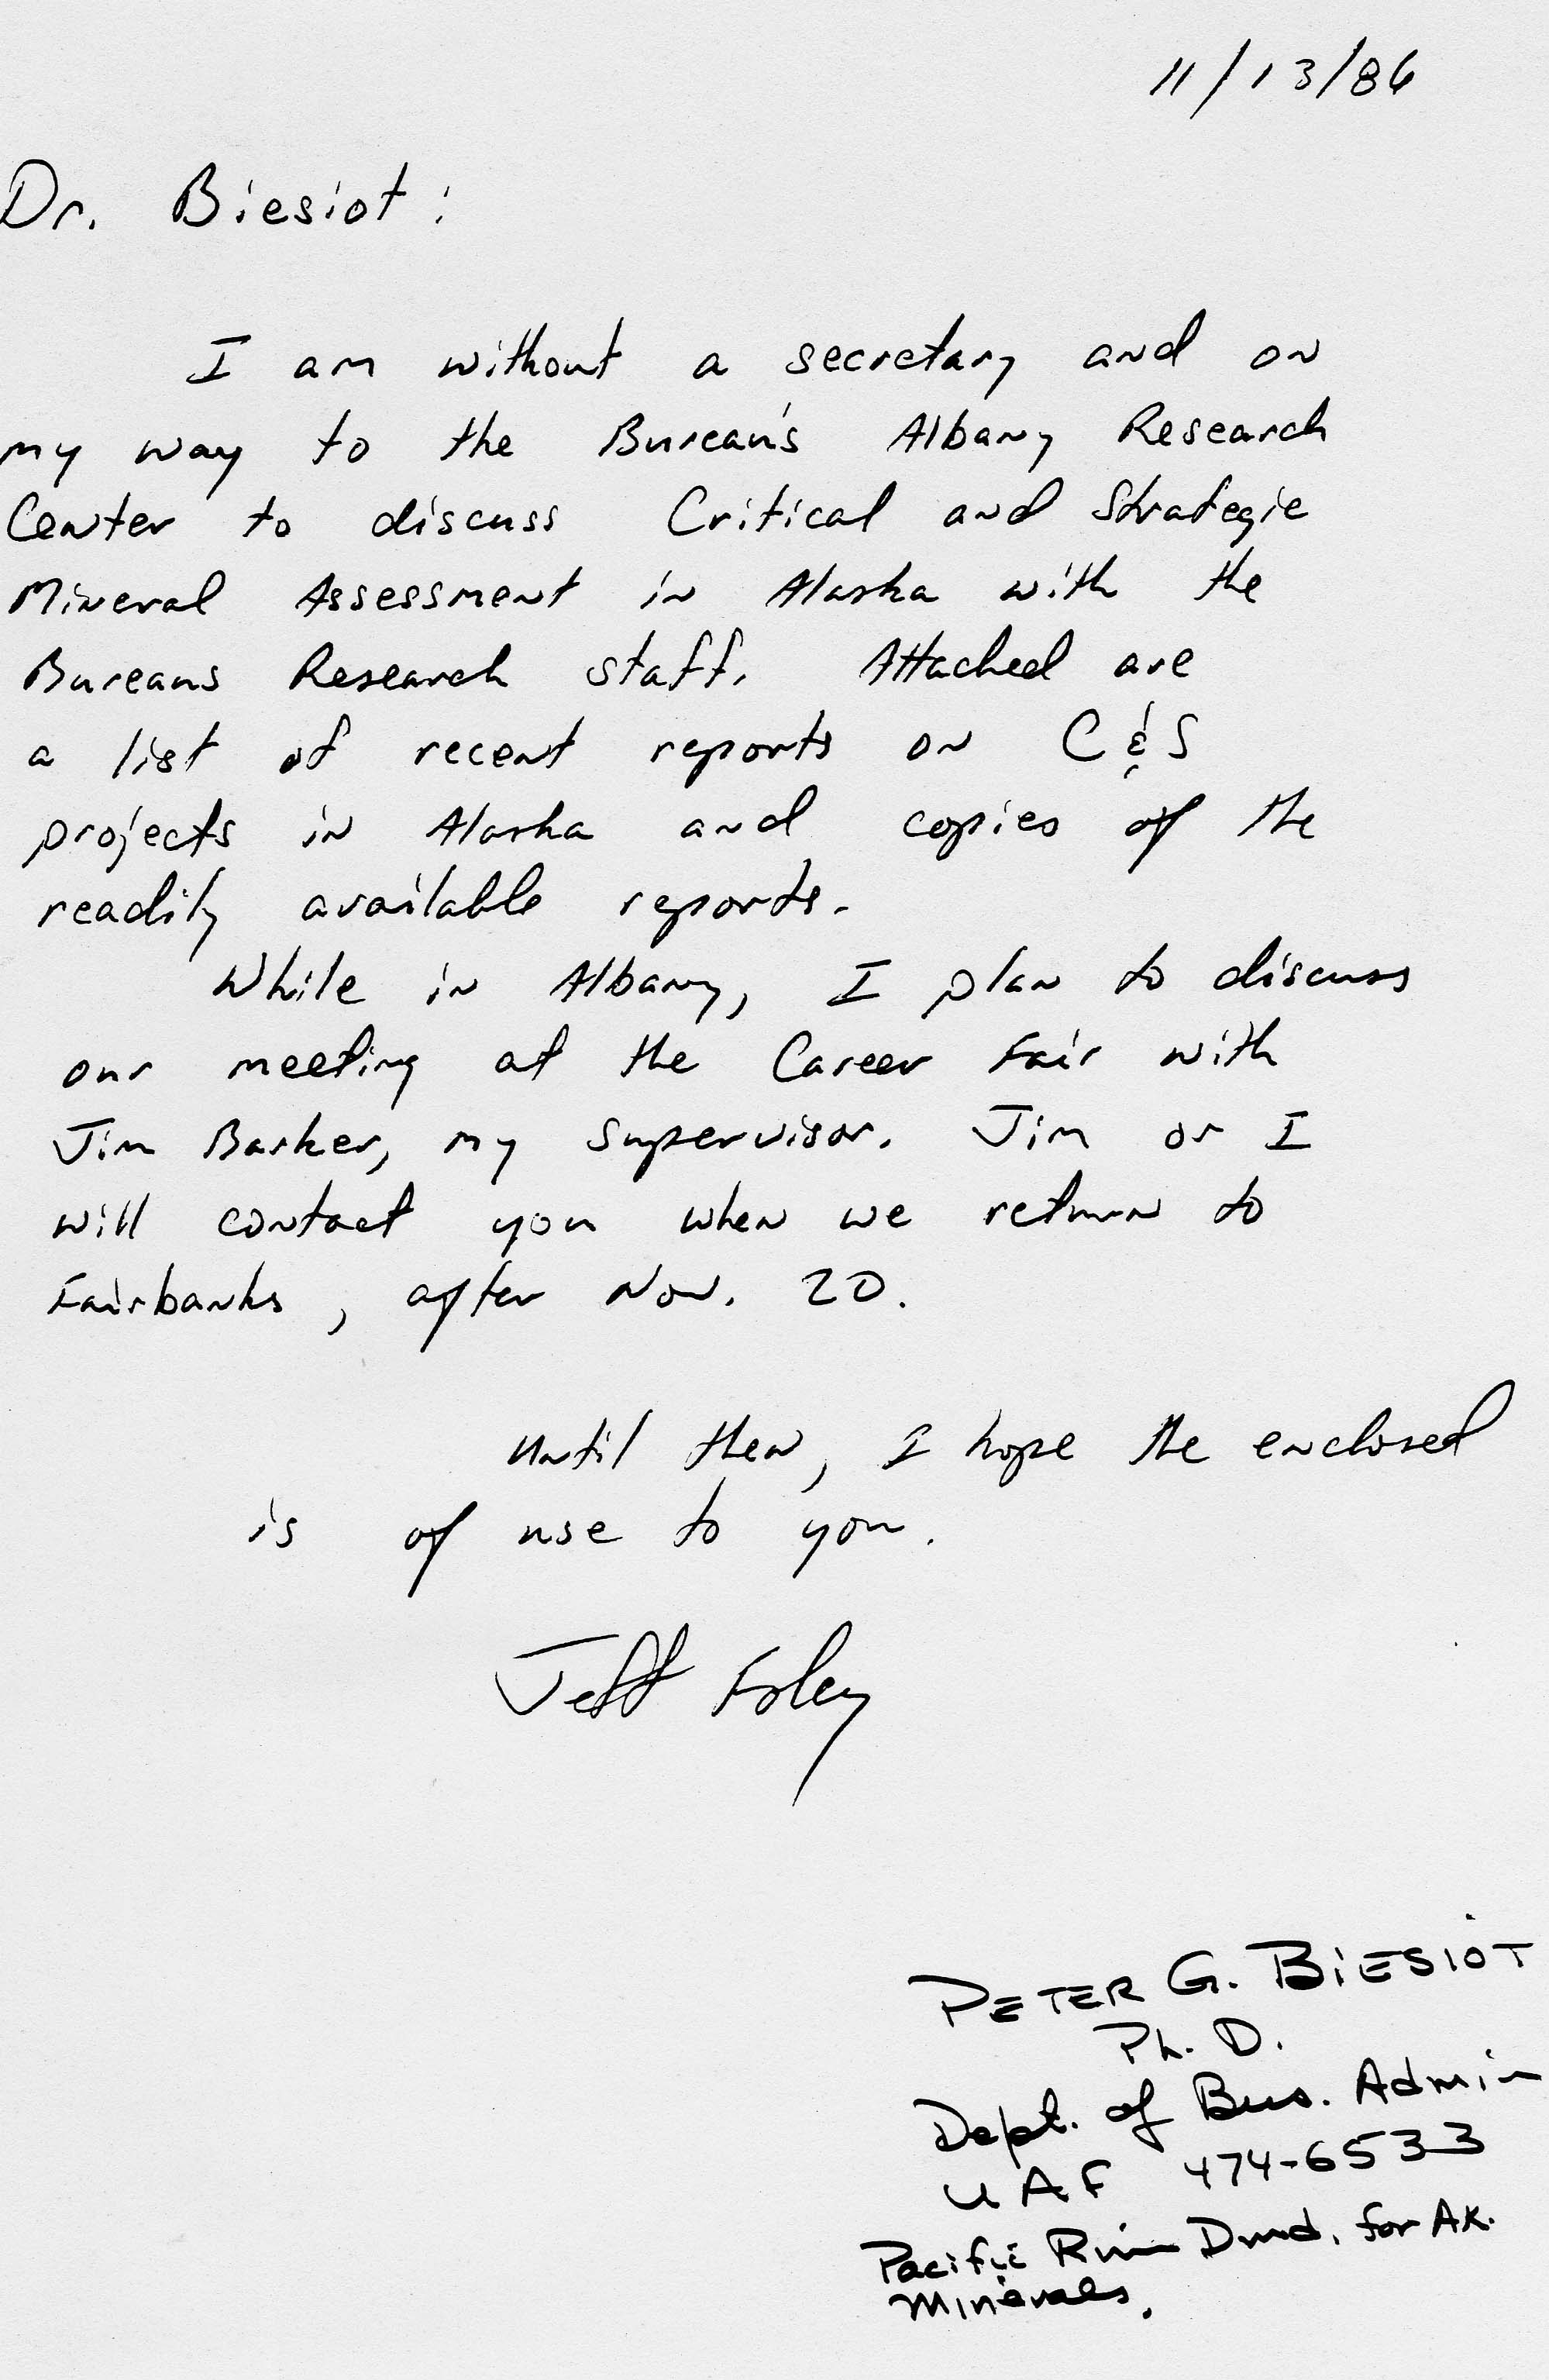 11/13/86
Dr. Biesiot:
I am without a secretary and on
my way to the Bureau's Albany Research
Center to discuss Critical and Strategic
Mineral Assessment in Alaska with the
Bureaus Research staff. Attached are
a list of recent reports on C & S
projects in Alaska and copies of the
readily available reports.
While in Albany, I plan to discuss
our meeting at the Career Fair with
Jim Barker, my supervisor. Jim or I
will contact you when we return to
Fairbanks, after Nov. 20.
Until then, I hope the enclosed
is of use to you.
Jeff Foley
PETER G. BIESIOT
Ph. D.
Dept. of Bus. Admin
UAF 474-6533
Pacific Rim Dmd. for AK.
Minerals.